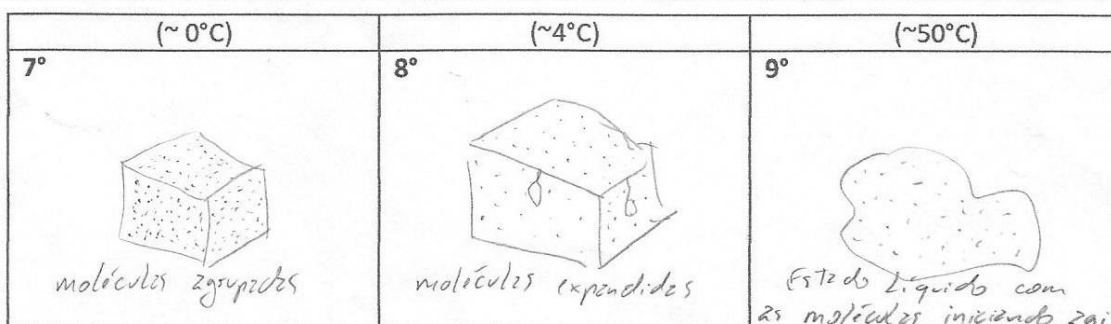 (~ 0°C) (~4°C) (~50°C)
7° 8° 9°
moléculas agrupadas moléculas expandidas Estado Líquido com
as moléculas iniciando